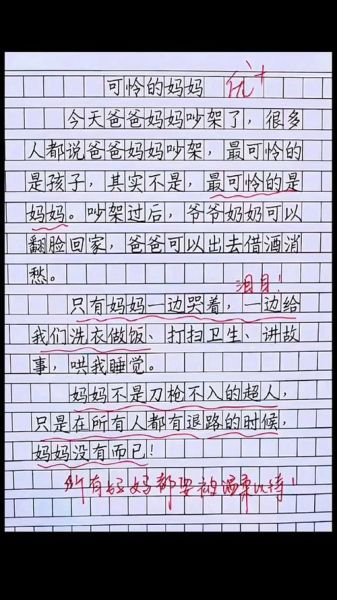 可怜的妈妈 优+
今天爸爸妈妈吵架了，很多
人都说爸爸妈妈吵架，最可怜的
是孩子，其实不是，最可怜的是
妈妈。吵架过后，爷爷奶奶可以
翻脸回家，爸爸可以出去借酒消
愁。 泪目！
只有妈妈一边哭着，一边给
我们洗衣做饭、打扫卫生、讲故
事，哄我睡觉。
妈妈不是刀枪不入的超人，
只是在所有人都有退路的时候，
妈妈没有而已！
所有妈妈都要被温柔以待！